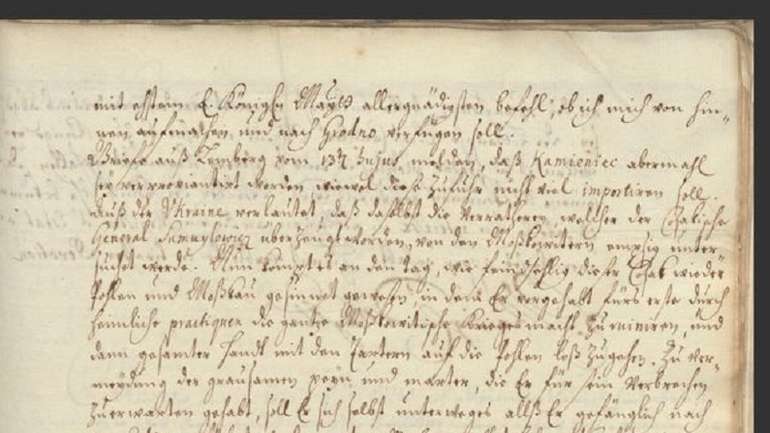 mit ehstem E. Königln Mayts allergnädigsten befehl, ob ich mich von hin-
nen aufmachen und nach Grodno verfügen soll.
Briefe auß Lemberg vom 13t hujus melden, daß Kamieniec abermahl
sey verproviantirt worden wiewol diese Zufuhr nicht viel importiren soll.
Auß der Ukraine verlautet, daß daselbst die Verrätherey, welcher der Cosakische
General Samuylowicz überzeugt worden, von den Moßkowitern emsig unter-
suchet werde. Nun kompt es an den tag, wie feindseelig dieser Cosak wieder
Pohlen und Moßkau gesinnet gewesen, in dem Er vorgehabt fürs erste durch
heimliche practiquen die gantze Moßkowitische Kriegesmacht zu ruiniren, und
dann gesamter Handt mit den Tartern auf die Pohlen loß zugehen. Zu ver-
meydung der grausamen pein und marter, die Er für sein Verbrechen
zu erwarten gehabt, soll Er sich selbst unterweges alß Er gefänglich nach